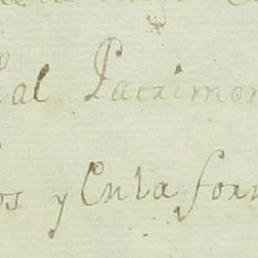 al Patrimon
os y En la form